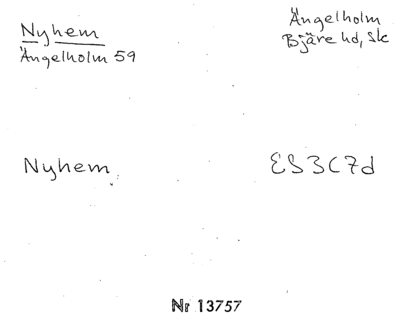 Nyhem
Ängelholm 59
Ängelholm
Bjäre hd, Sk
Nyhem
ES3C7d
Nr 13757